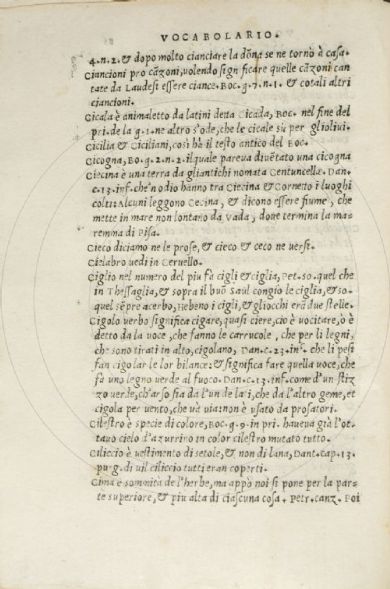 VOCABOLARIO.
4.n.2.& dopo molto cianciare la dõna se ne tornò à casa.
Ciancioni pro cãzoni, volendo significare quelle cãzoni can
tate da Laudesi essere ciance. BOC.g.7.n.1. & cotali altri
ciancioni.
Cicala è animaletto da latini detta Cicada, BOC. nel fine del
pri.de la g.1.ne altro s'ode, che le cicale sù per gli olivi.
Cicilia & Ciciliani, così hà il testo antico del BOC.
Cicogna, BO.g.2.n.2.il quale pareva divẽtato una cicogna
Ciecina è una terra da gli antichi nomata Centuncellæ. Dan.
C.13.inf.che'n odio hanno tra Ciecina & Cornetto i luoghi
colti: Alcuni leggono Cecina, & dicono essere fiume, che
mette in mare non lontano da Vada, dove termina la ma
remma di Pisa.
Cieco diciamo ne le prose, & cieco & ceco ne versi.
Cielabro vedi in Cervello.
Ciglio nel numero del piu fà cigli & ciglia, Pet. so. quel che
in Thessaglia, & sopra il buõ Saul congio le ciglia, & so.
quel sẽpre acerbo, Hebeno i cigli, & gliocchi erã due stelle.
Cigolo verbo significa cigare, quasi ciere, cio è vocitare, ò è
detto da la voce, che fanno le carrucole, che per li legni,
che sono tirati in alto, cigolano, Dan.c.23.in°. che li pesi
fan cigolar le lor bilance: & significa fare quella voce, che
fà uno legno verde al fuoco. Dan.c.13.inf.come d'un stiz
zo verde, ch'arso sia da l'un de lati, che da l'altro geme, et
cigola per vento, che và via: non è usato da prosatori.
Cilestro è specie di colore, BOC.g.9.in pri. haveva già l'ot-
tavo cielo d'azurrino in color cilestro mutato tutto.
Ciliccio è vestimento di setole, & non di lana, Dant.cap.13.
pu.g. di vil ciliccio tutti eran coperti.
Cima è sommità de l'herbe, ma appò noi si pone per la par-
te superiore, & piu alta di ciascuna cosa. Petr.canz. Poi